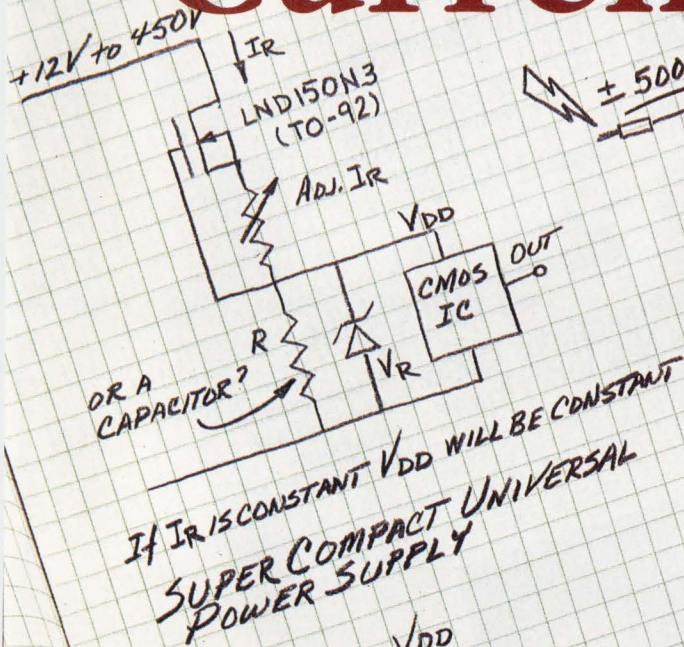 Curren
+12V to 450V
IR
LND150N3
(TO-92)
± 500
ADJ. IR
VDD
CMOS
IC
OUT
R
VR
OR A
CAPACITOR?
If IR IS CONSTANT VDD WILL BE CONSTANT
SUPER COMPACT UNIVERSAL
POWER SUPPLY
VDD